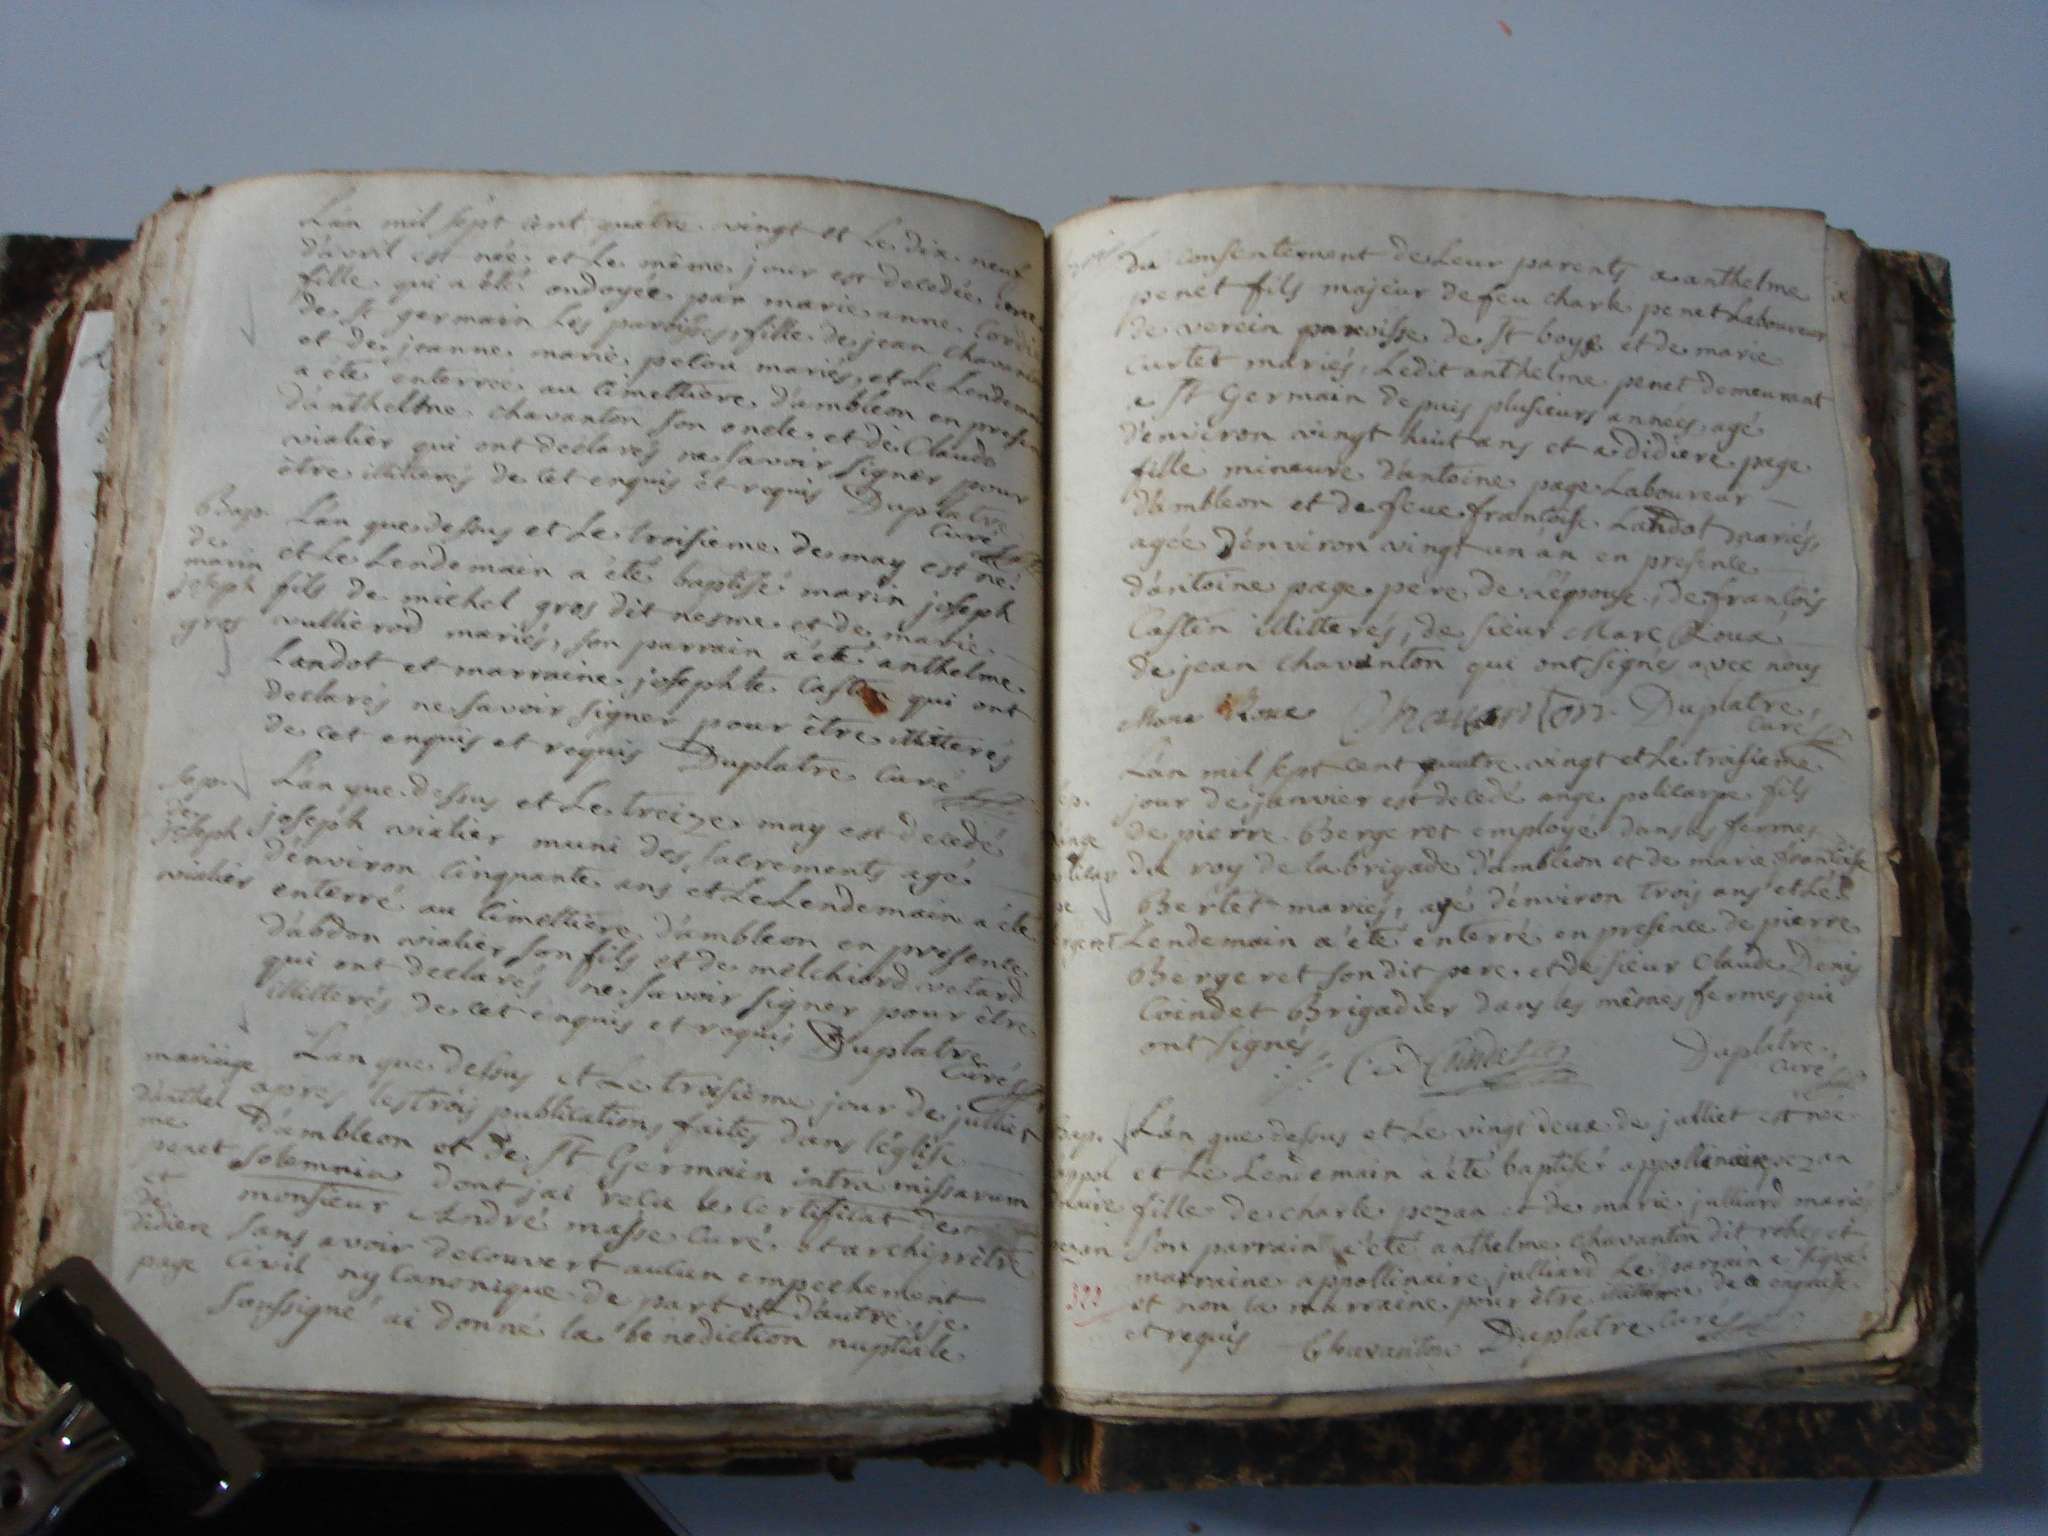 Lan mil sept cent quatre vingt et Le dix neuf
d'avril est née et Le même jour est decedée une
fille qui a été ondoyée par marie anne
de st germain Les paroisses, fille de jean chavanton
et de jeanne marie pelou mariés, et Le Lendemain
a été enterrée au cimettiere d'ambleon en presence
d'anthelme chavanton son oncle et de Claude
vialier qui ont declarés ne savoir signer pour
être illitterés de cet enquis et requis Duplatre
Curé
Bap.
de
marin
joseph
gros
Lan que dessus et Le troisieme de may est né
et Le Lendemain a été baptisé marin joseph
fils de michel gros dit nesme et de marie
vullierod mariés, son parrain a été anthelme
Landot et marraine josephte Castin qui ont
declarés ne savoir signer pour être illitterés
de cet enquis et requis Duplatre Curé
Sep.
de
joseph
vialier
Lan que dessus et Le treize may est decedé
joseph vialier muni des sacrements agé
d'environ cinquante ans et Le Lendemain a été
enterré au cimettiere d'ambleon en presence
d'abdon vialier son fils et de melchiord velard
qui ont declarés ne savoir signer pour être
illitterés de cet enquis et requis Duplatre
Curé
mariage
d'anthel
me
penet
et
de
didiere
page
Lan que dessus et Le troisieme jour de julliet
apres les trois publications faites dans l'église
D'ambleon et de St Germain intra missarum
solemnia dont jai recu le certificat de
monsieur André masse Curé et archiprêtre
sans avoir decouvert aucun empechement
Civil ny Canonique de part et d'autre, je
soussigné ai donné la bénediction nuptiale
du consentement de Leur parents a anthelme
penet fils majeur de feu charle penet Laboureur
de verein paroisse de St boys et de marie
curtet mariés, Ledit anthelme penet demeurant
a St Germain depuis plusieurs années agé
d'environ vingt huit ans et a didiere page
fille mineure d'antoine page Laboureur
d'ambleon et de feue françoise Landot mariés,
agée d'environ vingt un an en presence
d'antoine page pere de L'épouse, de françois
Castin illitterés, de sieur Marc Roux
de jean chavanton qui ont signés avec nous
Marc Roux Chavanton Duplatre
Curé
Lan mil sept cent quatre vingt et Le troisieme
jour de janvier est decedé ange policarpe fils
de pierre Bergeret employé dans les fermes
du roy de la brigade d'ambleon et de marie françoise
Bertet mariés, agé d'environ trois ans et Le
Lendemain a été enterré en presence de pierre
Bergeret son dit pere et de sieur Claude Denis
Coindet Brigadier dans les mêmes fermes qui
ont signés
Duplatre
Curé
Bap.
appol
inaire
pezan
Lan que dessus et Le vingt deux de julliet est née
et Le Lendemain a été baptisée appollinaire pezan
fille de charle pezan et de marie julliard mariés
son parrain a été anthelme chavanton dit rohes et
marraine appollinaire julliard Le parrain a signé
et non la marraine pour être illitterée de ce enquise
et requis Chavanton Duplatre Curé